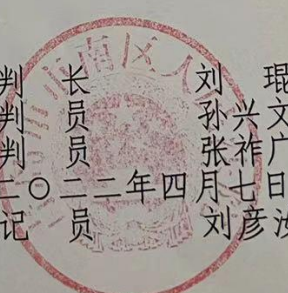 判 长 刘 琨
判 员 孙兴文
判 员 张祚广
二〇二二年四月七日
记 员 刘彦汝
南区人